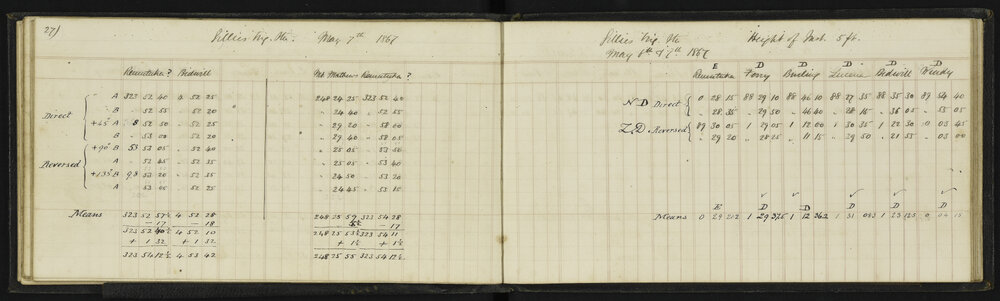 27)
Gillies Trig. Stn. May 7th 1867
Remutaka ? Bidwill
Mt. Mathews Remutaka ?
A 323 52 40 4 52 25
248 24 25 323 52 40
Direct
" B " 52 55 " 52 20
" 24 40 " 52 55
+45° A 8 52 50 " 52 25
" 29 20 " 58 00
" B " 53 00 " 52 20
" 29 40 " 58 05
+90° B 53 53 05 " 52 40
" 25 05 " 53 50
Reversed
A " 52 45 " 52 35
" 25 05 " 53 40
+135° B 98 53 20 " 52 35
" 24 50 " 53 20
A " 53 05 " 52 25
" 24 45 " 53 10
Means 323 52 57½ 4 52 28
248 25 59 323 54 28
— 17 — 18
— 17
323 52 40½ 4 52 10
248 25 53½ 323 54 11
+ 1 32 + 1 32
+ 1½ + 1½
323 54 12½ 4 53 42
248 25 55 323 54 12½
Gillies Trig. Stn Height of Inst. 5 ft.
May 6th & 7th 1867
E D D D D D
Remutaka Torry Bruding Lucena Bidwill Windy
N D Direct 0 28 15 88 29 10 88 46 10 88 27 35 88 35 30 89 54 40
" 28 35 " 29 50 " 46 40 " 28 15 " 36 05 " 55 05
Z D " Reversed 89 30 05 1 29 05 1 12 00 1 30 35 1 22 30 0 03 45
" 29 20 " 28 25 " 11 15 " 29 50 " 21 55 " 03 00
E D D D D D
Means 0 29 21.2 1 29 32.5 1 12 36.2 1 31 08.3 1 23 12.5 0 04 15